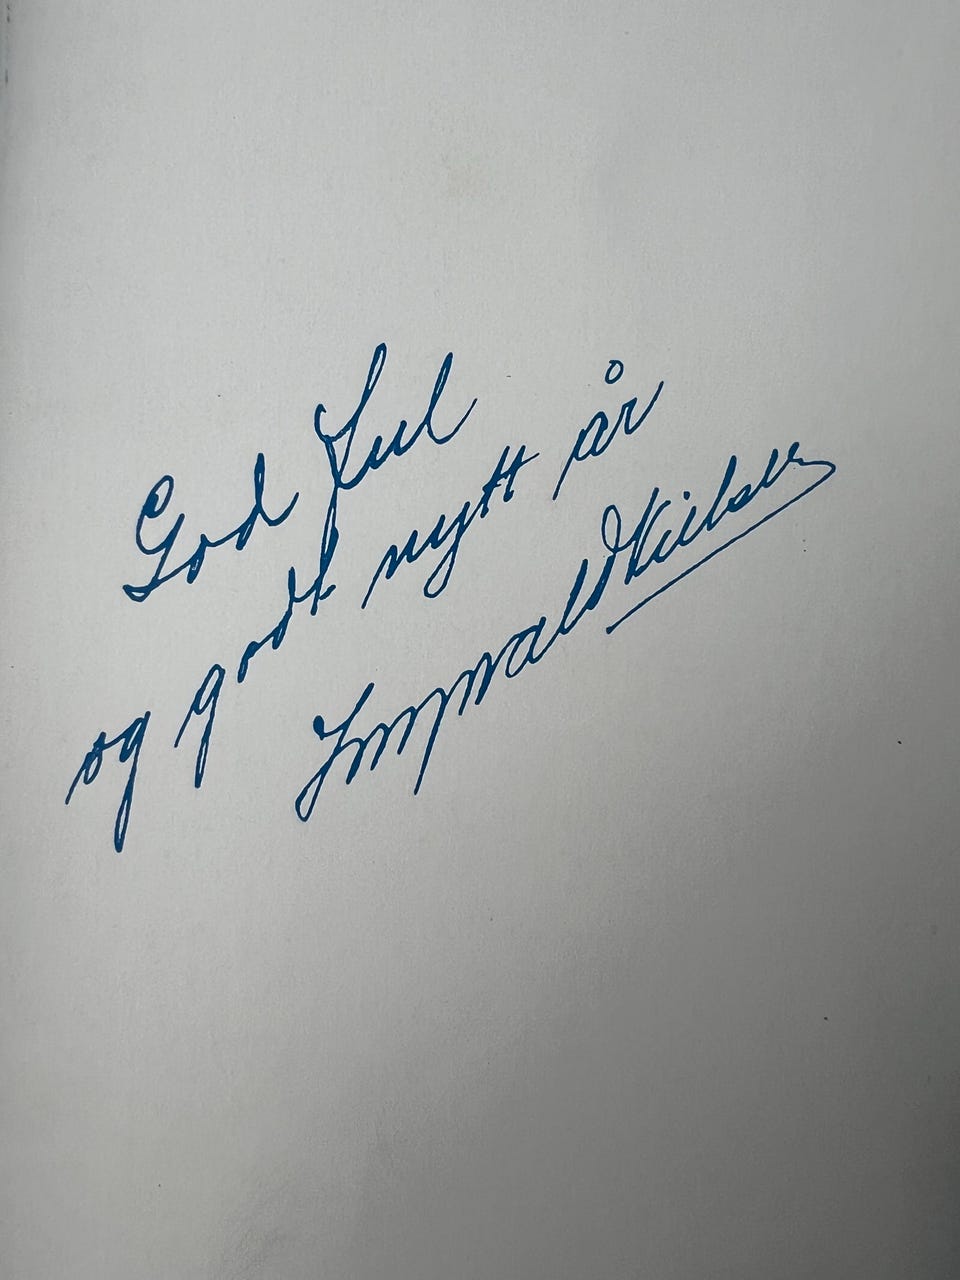 God Jul
og godt nytt år
Ingvald Nielsen